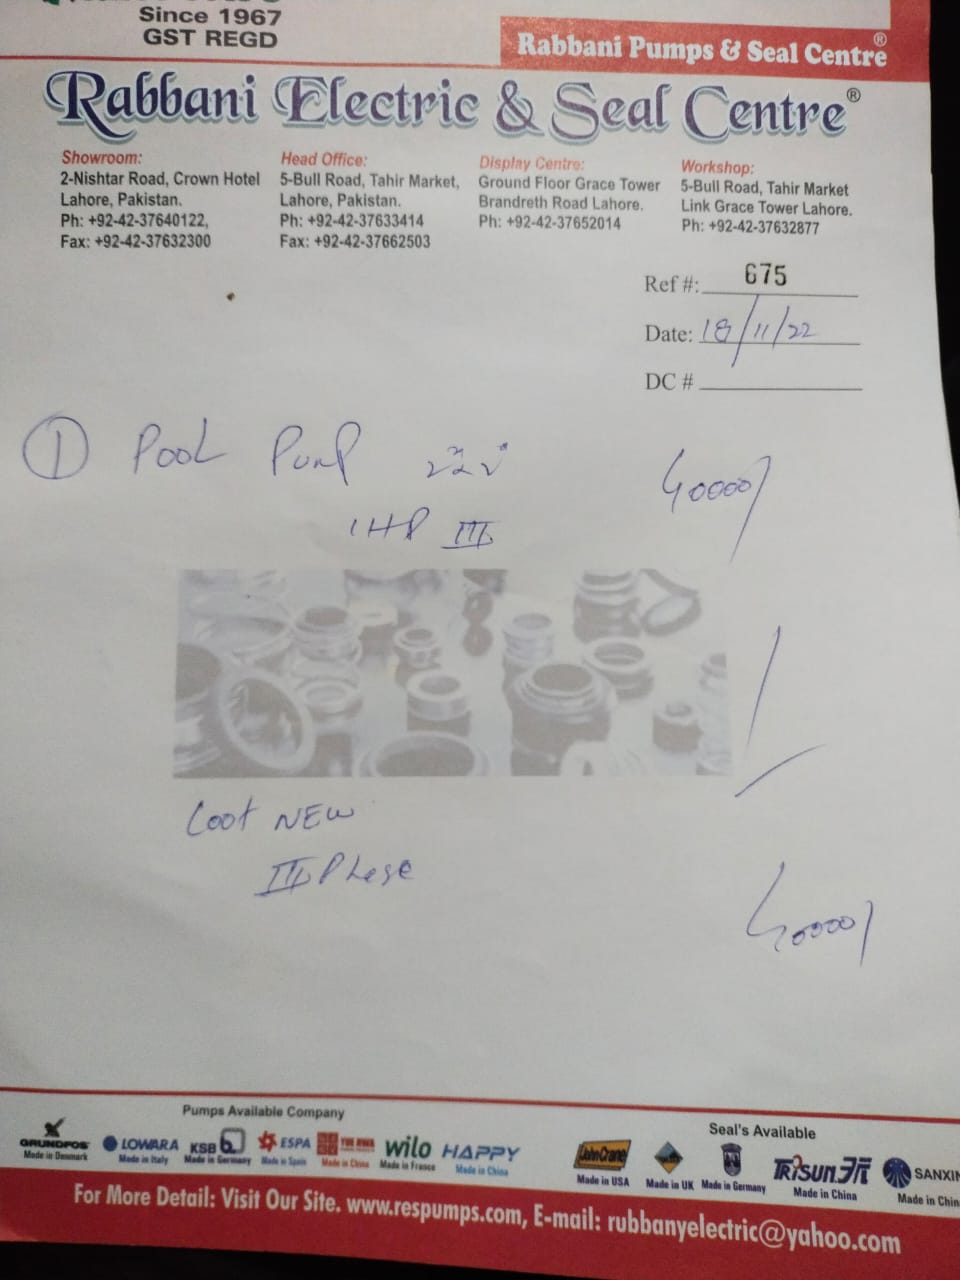 Since 1967
GST REGD
Rabbani Pumps & Seal Centre®
Rabbani Electric & Seal Centre®
Showroom:
2-Nishtar Road, Crown Hotel
Lahore, Pakistan.
Ph: +92-42-37640122,
Fax: +92-42-37632300
Head Office:
5-Bull Road, Tahir Market,
Lahore, Pakistan.
Ph: +92-42-37633414
Fax: +92-42-37662503
Display Centre:
Ground Floor Grace Tower
Brandreth Road Lahore.
Ph: +92-42-37652014
Workshop:
5-Bull Road, Tahir Market
Link Grace Tower Lahore.
Ph: +92-42-37632877
Ref #: 675
Date: 18/11/22
DC #
① Pool Pump 40000/
1HP III
Loot NEW
III Phase
40000/
Pumps Available Company
GRUNDFOS Made in Denmark
LOWARA Made in Italy
KSB Made in Germany
ESPA Made in Spain
Made in China
wilo Made in France
HAPPY Made in China
Seal's Available
John Crane Made in USA
Made in UK
Made in Germany
TRISUN Made in China
SANXIN Made in Chin
For More Detail: Visit Our Site. www.respumps.com, E-mail: rubbanyelectric@yahoo.com